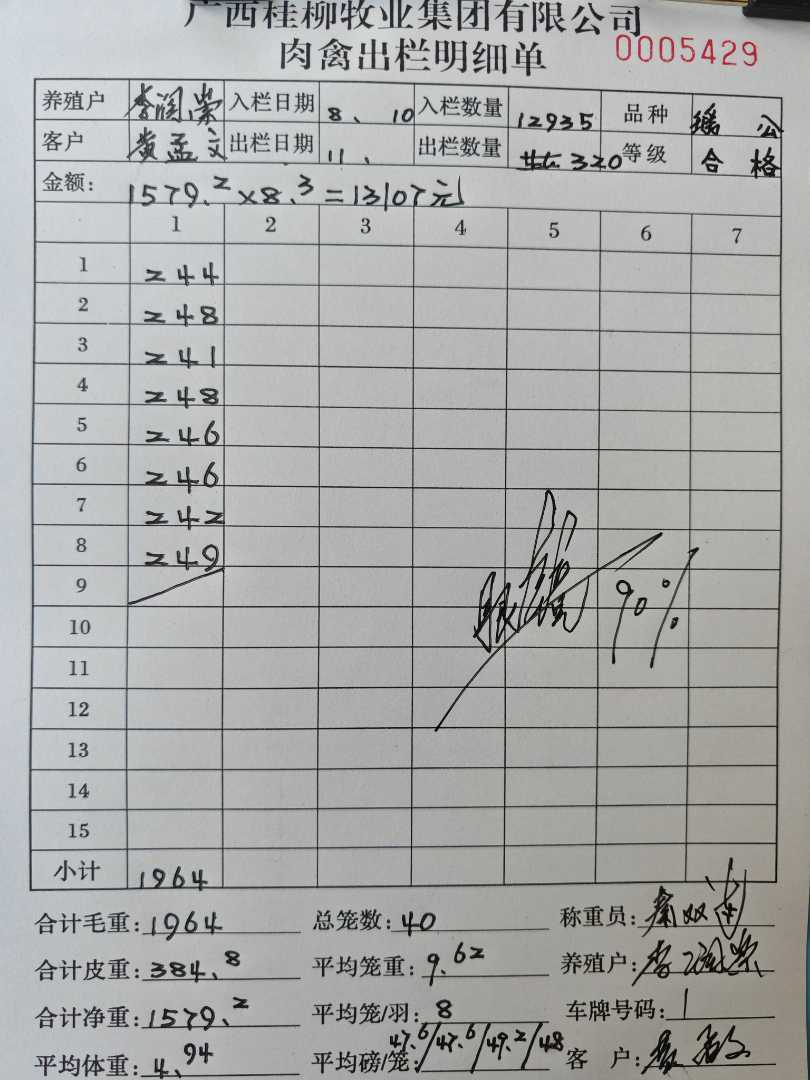 广西桂柳牧业集团有限公司
肉禽出栏明细单 0005429
养殖户 李润荣 入栏日期 8、10 入栏数量 12935 品种 瑶公
客户 黄孟文 出栏日期 11、 出栏数量 320 等级 合格
金额: 1579.2×8.3=13107元
1 2 3 4 5 6 7
1 244
2 248
3 241
4 248
5 246
6 246
7 242
8 249
9
10
11
12
13
14
15
90%
小计 1964
合计毛重: 1964 总笼数: 40 称重员: 秦双
合计皮重: 384.8 平均笼重: 9.62 养殖户: 李润荣
合计净重: 1579.2 平均笼/羽: 8 车牌号码: 1
平均体重: 4.94 平均磅/笼: 47.6/47.6/49.2/48 客户: